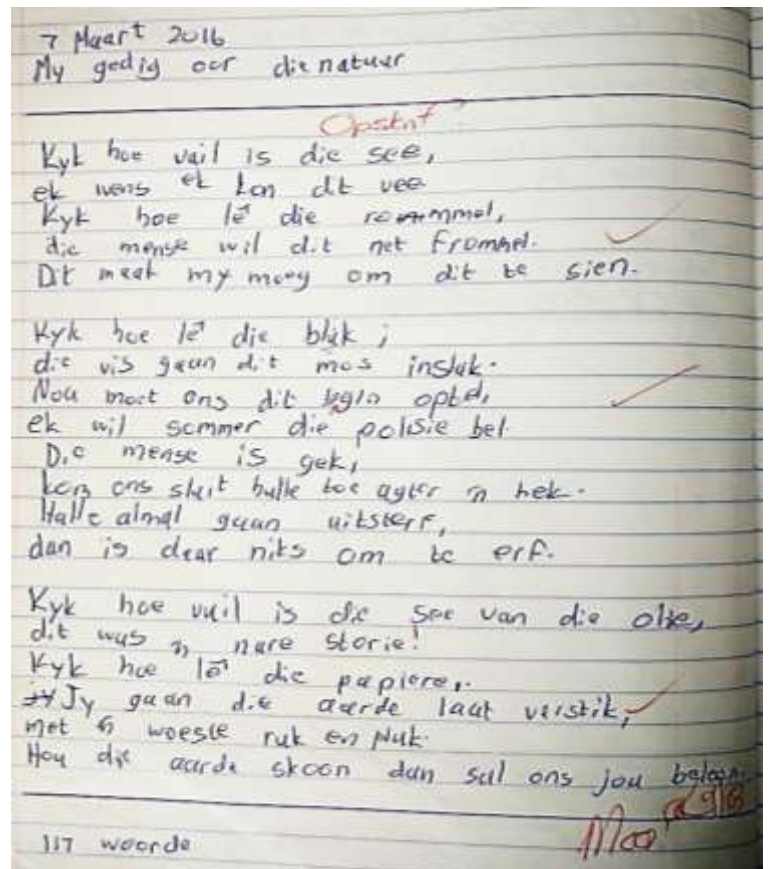 7 Maart 2016
My gedig oor die natuur
Opstel?
Kyk hoe vuil is die see,
ek wens ek kon dit vee
Kyk hoe lê die rommel,
die mense wil dit net frommel.
Dit maak my moeg om dit te sien.
Kyk hoe lê die blik,
die vis gaan dit mos insluk.
Nou moet ons dit begin optel,
ek wil sommer die polisie bel
Die mense is gek,
kom ons sluit hulle toe agter 'n hek.
Hulle almal gaan uitsterf,
dan is daar niks om te erf.
Kyk hoe vuil is die see van die olie,
dit was 'n nare storie!
Kyk hoe lê die papiere,
Jy gaan die aarde laat verstik,
met 'n woeste ruk en Nuk.
Hou die aarde skoon dan sal ons jou beloon.
Mooi
117 woorde